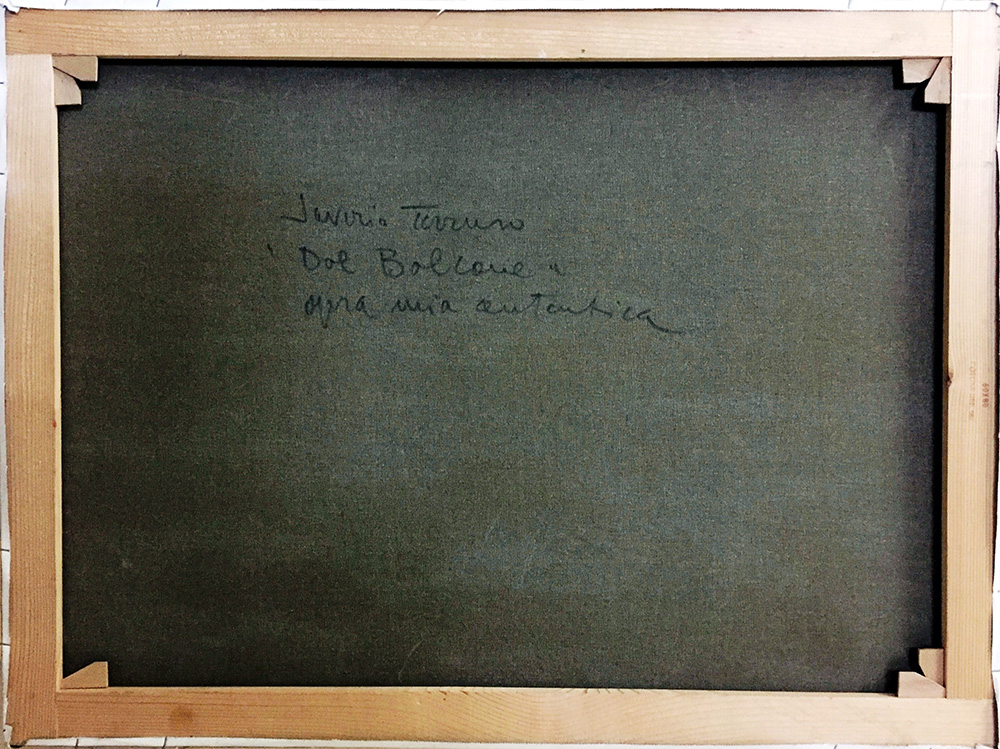 Saverio Terruso
"Dal Balcone"
opra mia autentica
60X80